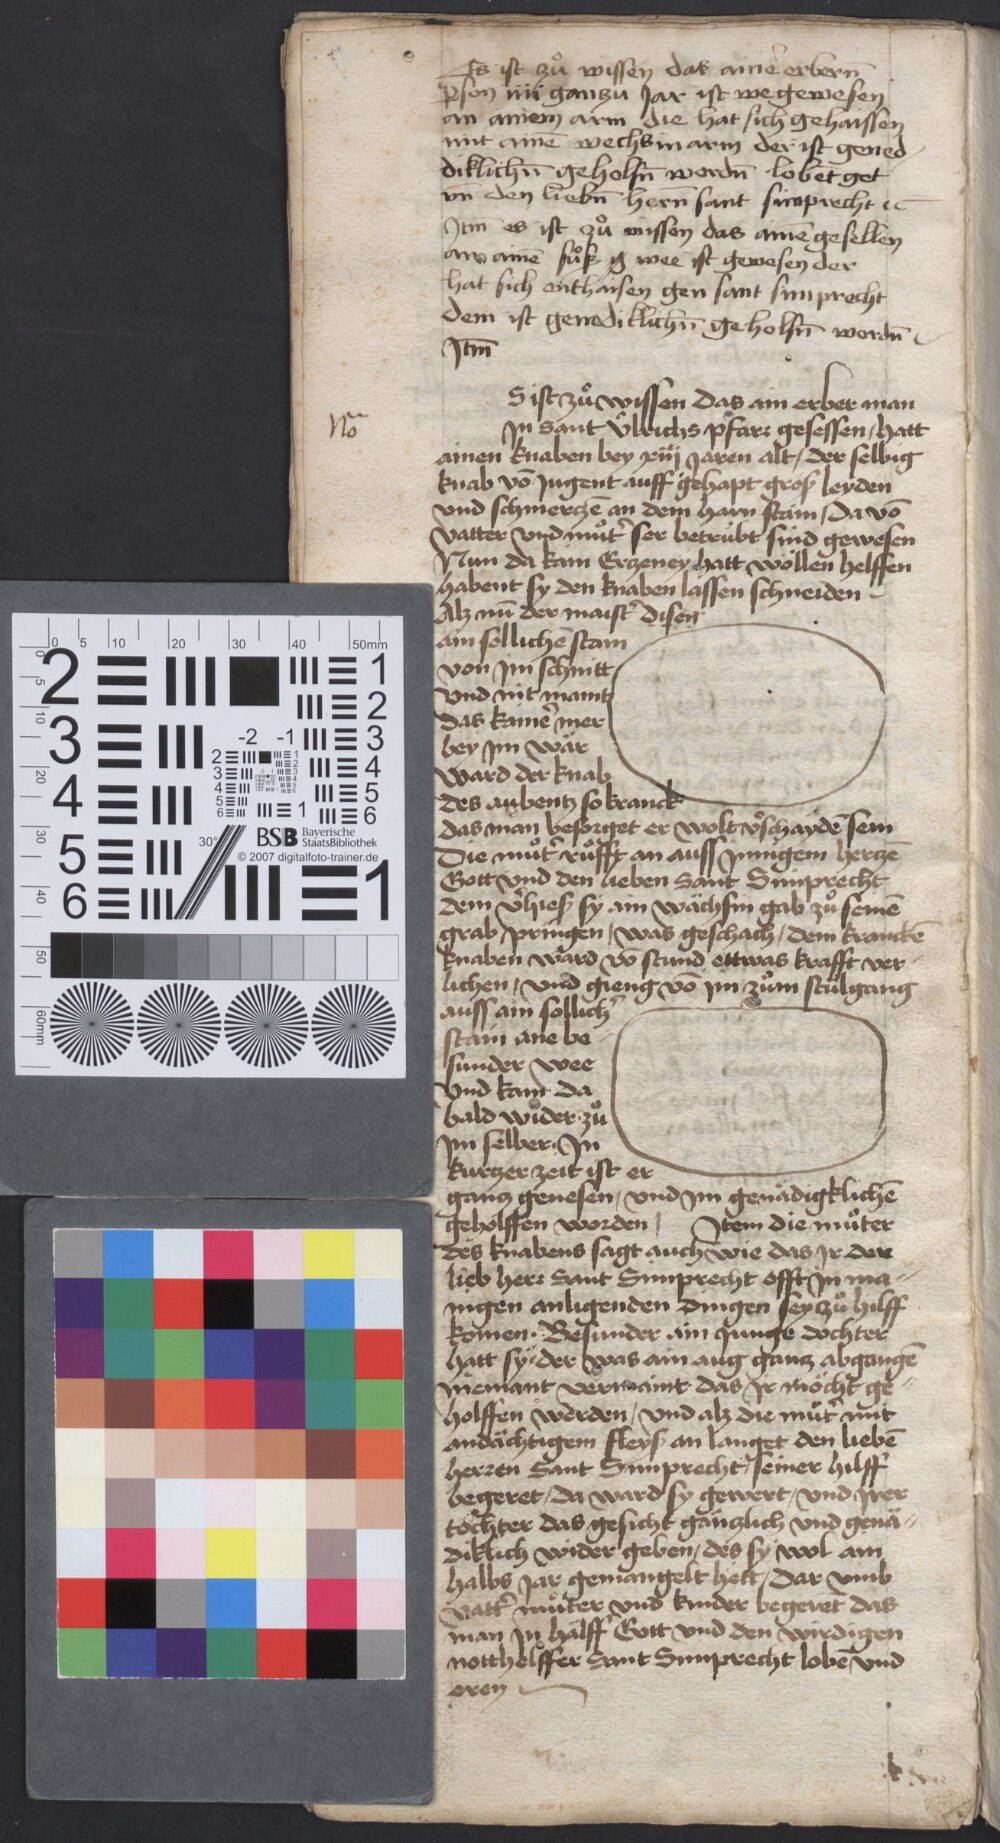 Es ist zů wissen das aine͂ erbern̄
p̲son iiii gantzu Jar ist we gewesen
an ainem arm die hat sich gehaissen
mit aine͂ wechsin arm der ist gened
diklichn̄ geholfn̄ wordn̄ lobet got
vn̄ den liebn̄ hern̄ sant simprecht ꝛc
Jtm̄ es ist zů wissen das aine͂ gesellen
an aine͂ fůß wee ist gewesen der
hat sich enthaisen gen sant simprecht
dem ist genediklichn̄ geholfn̄ wordn̄
Jtm̄
S ist zů wissen das ain erber man
Jn sant Ůlrichs pfarr gesessen / hatt
No
ainen knaben bey xiiij jaren alt / der selbig
knab vō jugent auff gehapt groß leyden
vnd schmertzē an dem harn stain / Da vō
vatter vnd můt͛ ser betrůbt sind gewesen
Nun da kain Ertzeney hatt wöllen helffen
habent sy den knaben lassen schneiden
Alz nū der maist͛ disen
ain sölliche͂ stain
von jm schnitt
vnd nit maint
das kaine͛ mer
bey jm wär
ward der knab
des aubentz so kranck
das man besorget er wolt v͛schayde͂ sein
Die můt͛ růfft an auss jnnigem hertze͂
Gott vnd den lieben Sant Simprecht
dem v͛hieß sy ain wächsin gab zů seine͂
grab pringen / was geschach / dem krancke͂
knaben ward vō stund ettwas krafft ver
lichen / vnd gieng vō jm zům stůlgang
auss ain söllich͛
stain ane be
sunder wee
vnd kam da
bald wider zů
jm selber. Jn
kurtzer zeit ist er
gantz genesen / vnd jm genädigkliche͂
geholffen worden / Jtem die můter
des knabens sagt auch wie das jr der
lieb herr Sant Simprecht offt jn ma
nigen anligenden dingen sey zů hilff
komen. Besunder ain junge dochter
hatt sy der was ain aug gantz abgange͂
niemant vermaint das jr möcht ge
holffen werden / vnd alz die můt͛ mit
andächtigem fleyß an langet den liebe͂
herren Sant Simprecht seiner hilff
begeret / da ward sy gewert / vnd jrer
tochter das gesicht gäntzlich vnd genä
diklich wider geben / des sy wol ain
halbs jar gemangelt hett / Dar vmb
vatt͛ můter vnd kinder begeret das
man jn hälff Gott vnd den wirdigen
notthelffer Sant Simprecht lobe͂ vnd
eren
0 5 10 20 30 40 50mm
5 10 20 30 40 50 60mm
2 1
3 2
4 3
5 4
6 5
6
-2 -1
30°
BSB Bayerische
StaatsBibliothek
© 2007 digitalfoto-trainer.de
1